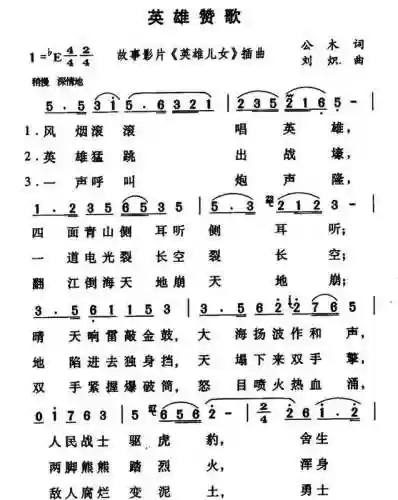 英雄赞歌
1=♭E 4/4 2/4
故事影片《英雄儿女》插曲
公木 词
刘炽 曲
稍慢 深情地
5·5 3i 5· 6 5·6 3 2 1 2 3 5 2 1 6 5·
1.风烟滚滚 唱英雄,
2.英雄猛跳 出战壕,
3.一声呼叫 炮声隆,
1· 2 3 5 2 3 6 5 3 5 5· 3 2 3
四面青山侧耳听侧耳听;
一道电光裂长空裂长空;
翻江倒海天地崩天地崩;
3· 5 6 1 1 5 3 6 5 1 2 3· 2
晴天响雷敲金鼓,大海扬波作和声,
地陷进去独身挡,天塌下来双手擎,
双手紧握爆破筒,怒目喷火热血涌,
0 i 7 6 3 5· 6 5 6 2 2/4 2 i· 2
人民战士驱虎豹,舍生
两脚熊熊踏烈火,浑身
敌人腐烂变泥土,勇士